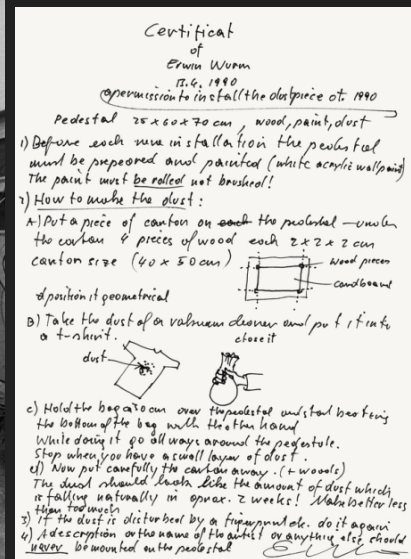 Certificat
of
Erwin Wurm
13.6. 1990
a permission to install the dustpiece ot. 1990
Pedestal 25 x 60 x 70 cm, wood, paint, dust
1) Before each new installation the pedestal
must be prepeared and painted (white acrylic wallpaint)
The paint must be rolled not brushed!
2) How to make the dust:
A) Put a piece of canton on each the pedestal – under
the canton 4 pieces of wood each 2 x 2 x 2 cm
canton size (40 x 50 cm)
wood pieces
cardboard
position it geometrical
B) Take the dust of a vakuum cleaner and put it into
a t-shirt.
close it
dust
c) Hold the bag 20 cm over the pedestal and start beating
the bottom of the bag with the other hand
While doing it go all ways around the pedestale.
Stop when you have a small layer of dust.
d) Now put carefully the canton away. (+ woods)
The dust should look like the amount of dust which
is falling naturally in oprox. 2 weeks! Make better less
than too much
3) If the dust is disturbed by a fingerprint ok. do it again
4) A description or the name of the artist or anything else should
never be mounted on the pedestal